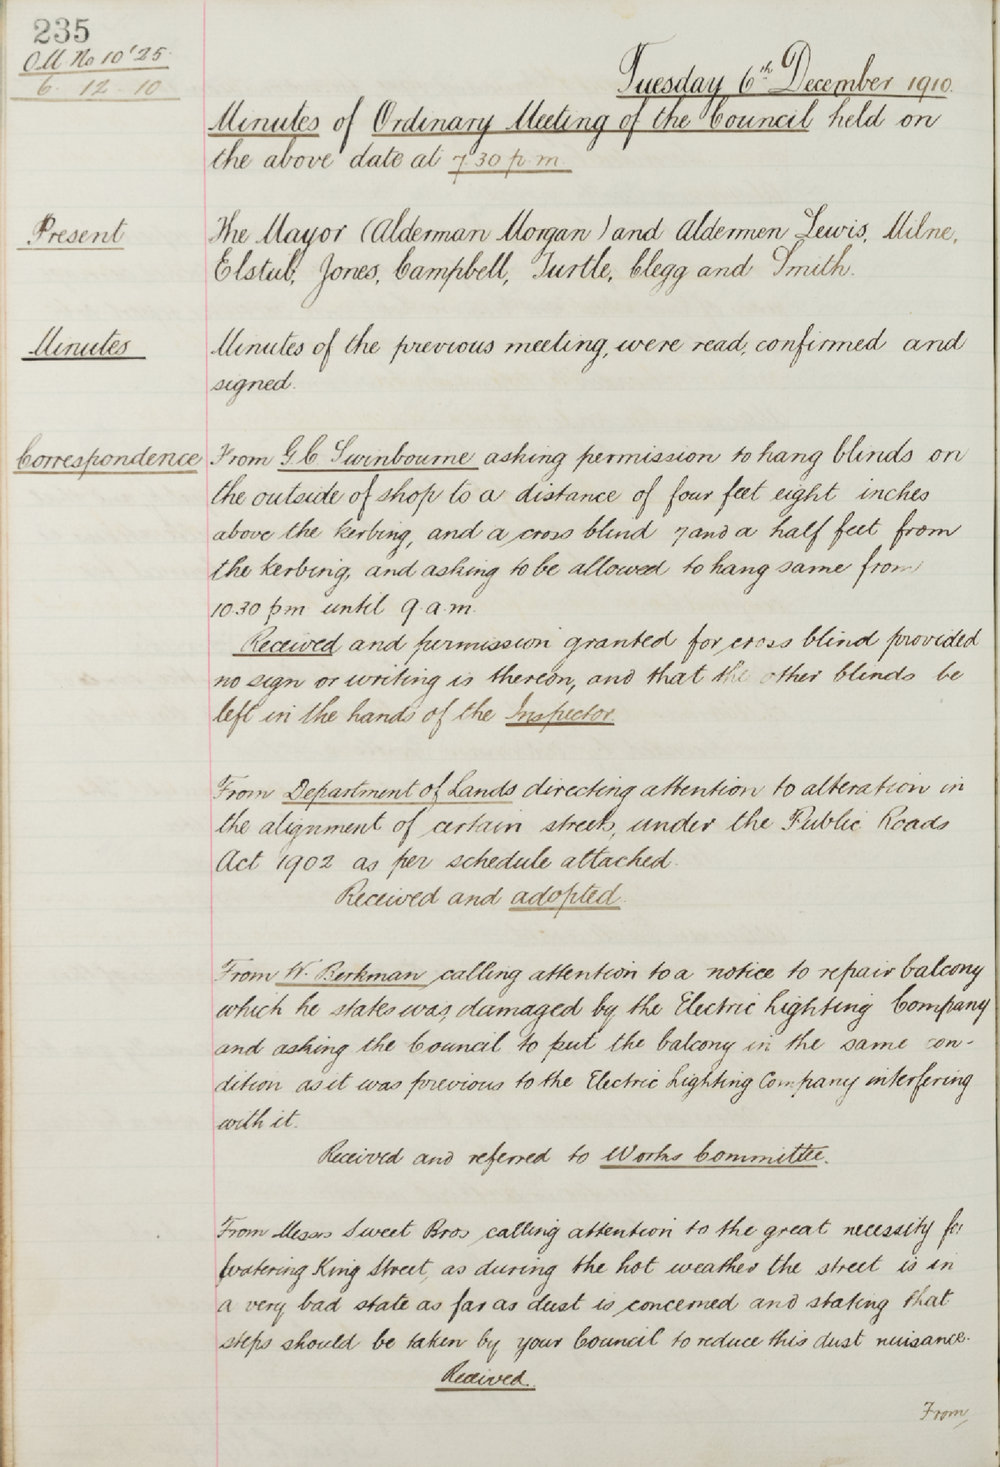 235
O.M. No 10'25.
6. 12. 10
Tuesday 6th December 1910.
Minutes of Ordinary Meeting of the Council held on
the above date at 7.30 p.m.
Present
The Mayor (Alderman Morgan) and Aldermen Lewis, Milne,
Elstub, Jones, Campbell, Turtle, Clegg and Smith.
Minutes
Minutes of the previous meeting, were read, confirmed and
signed.
Correspondence
From G. C. Swinbourne asking permission to hang blinds on
the outside of shop to a distance of four feet eight inches
above the kerbing, and a cross blind 7 and a half feet from
the kerbing, and asking to be allowed to hang same from
10.30 pm until 9. a.m.
Received and permission granted for cross blind provided
no sign or writing is thereon, and that the other blinds be
left in the hands of the Inspector
From Department of Lands directing attention to alteration in
the alignment of certain streets, under the Public Roads
Act 1902 as per schedule attached.
Received and adopted.
From W. Berkman calling attention to a notice to repair balcony
which he states was damaged by the Electric Lighting Company
and asking the Council to put the balcony in the same con-
dition as it was previous to the Electric Lighting Company interfering
with it.
Received and referred to Works Committee.
From Messrs Sweet Bros, calling attention to the great necessity for
watering King Street, as during the hot weather the street is in
a very bad state as far as dust is concerned and stating that
steps should be taken by your Council to reduce this dust nuisance.
Received.
From,